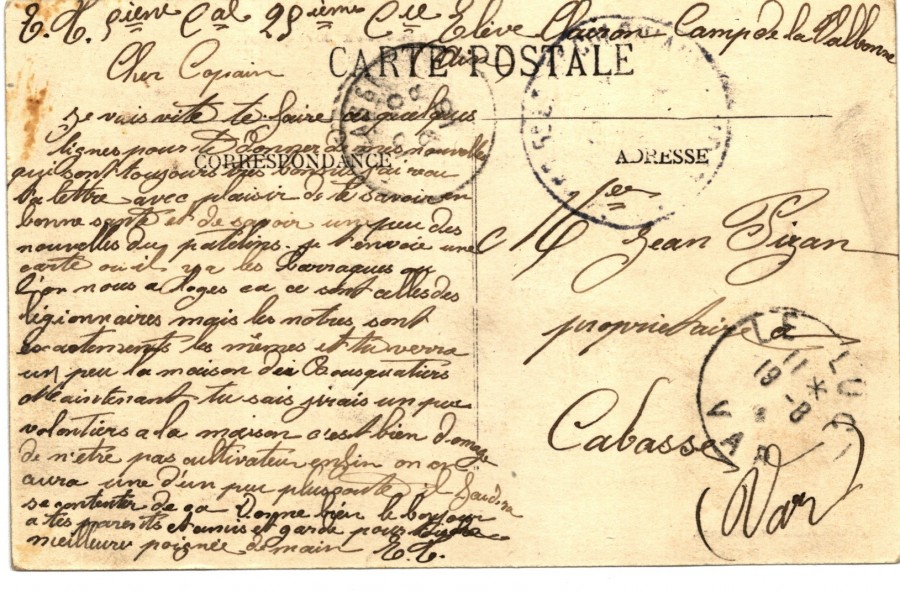 E. H. 5ième Cal 25ième Cie Elève Clairon Camp de la Valbonne
CARTE POSTALE
Cher Copain
CORRESPONDANCE
ADRESSE
je vais vite te faire quelques
lignes pour te donner de mes nouvelles
qui sont toujours très bonnes j'ai reçu
ta lettre avec plaisir de te savoir en
bonne santé et de savoir un peu des
nouvelles du patelin. je t'envoie une
carte ou il y a les Barraques ou
l'on nous a logés ca ce sont celles des
légionnaires mais les notres sont
exactements les mêmes et tu verra
un peu la maison des
Maintenant tu sais jirais un peu
volontiers a la maison c'est bien domage
de n'être pas cultivateur enfin on en
aura une d'un peu plus il faudra
se contenter de ca Donne bien le bonjour
a tes parents et amis et garde pour
meilleure poignée de main E. C.
Jean Pizan
propriétaire a
Cabasse
(Var)
LE LUC
11 *
19 -8
VAR